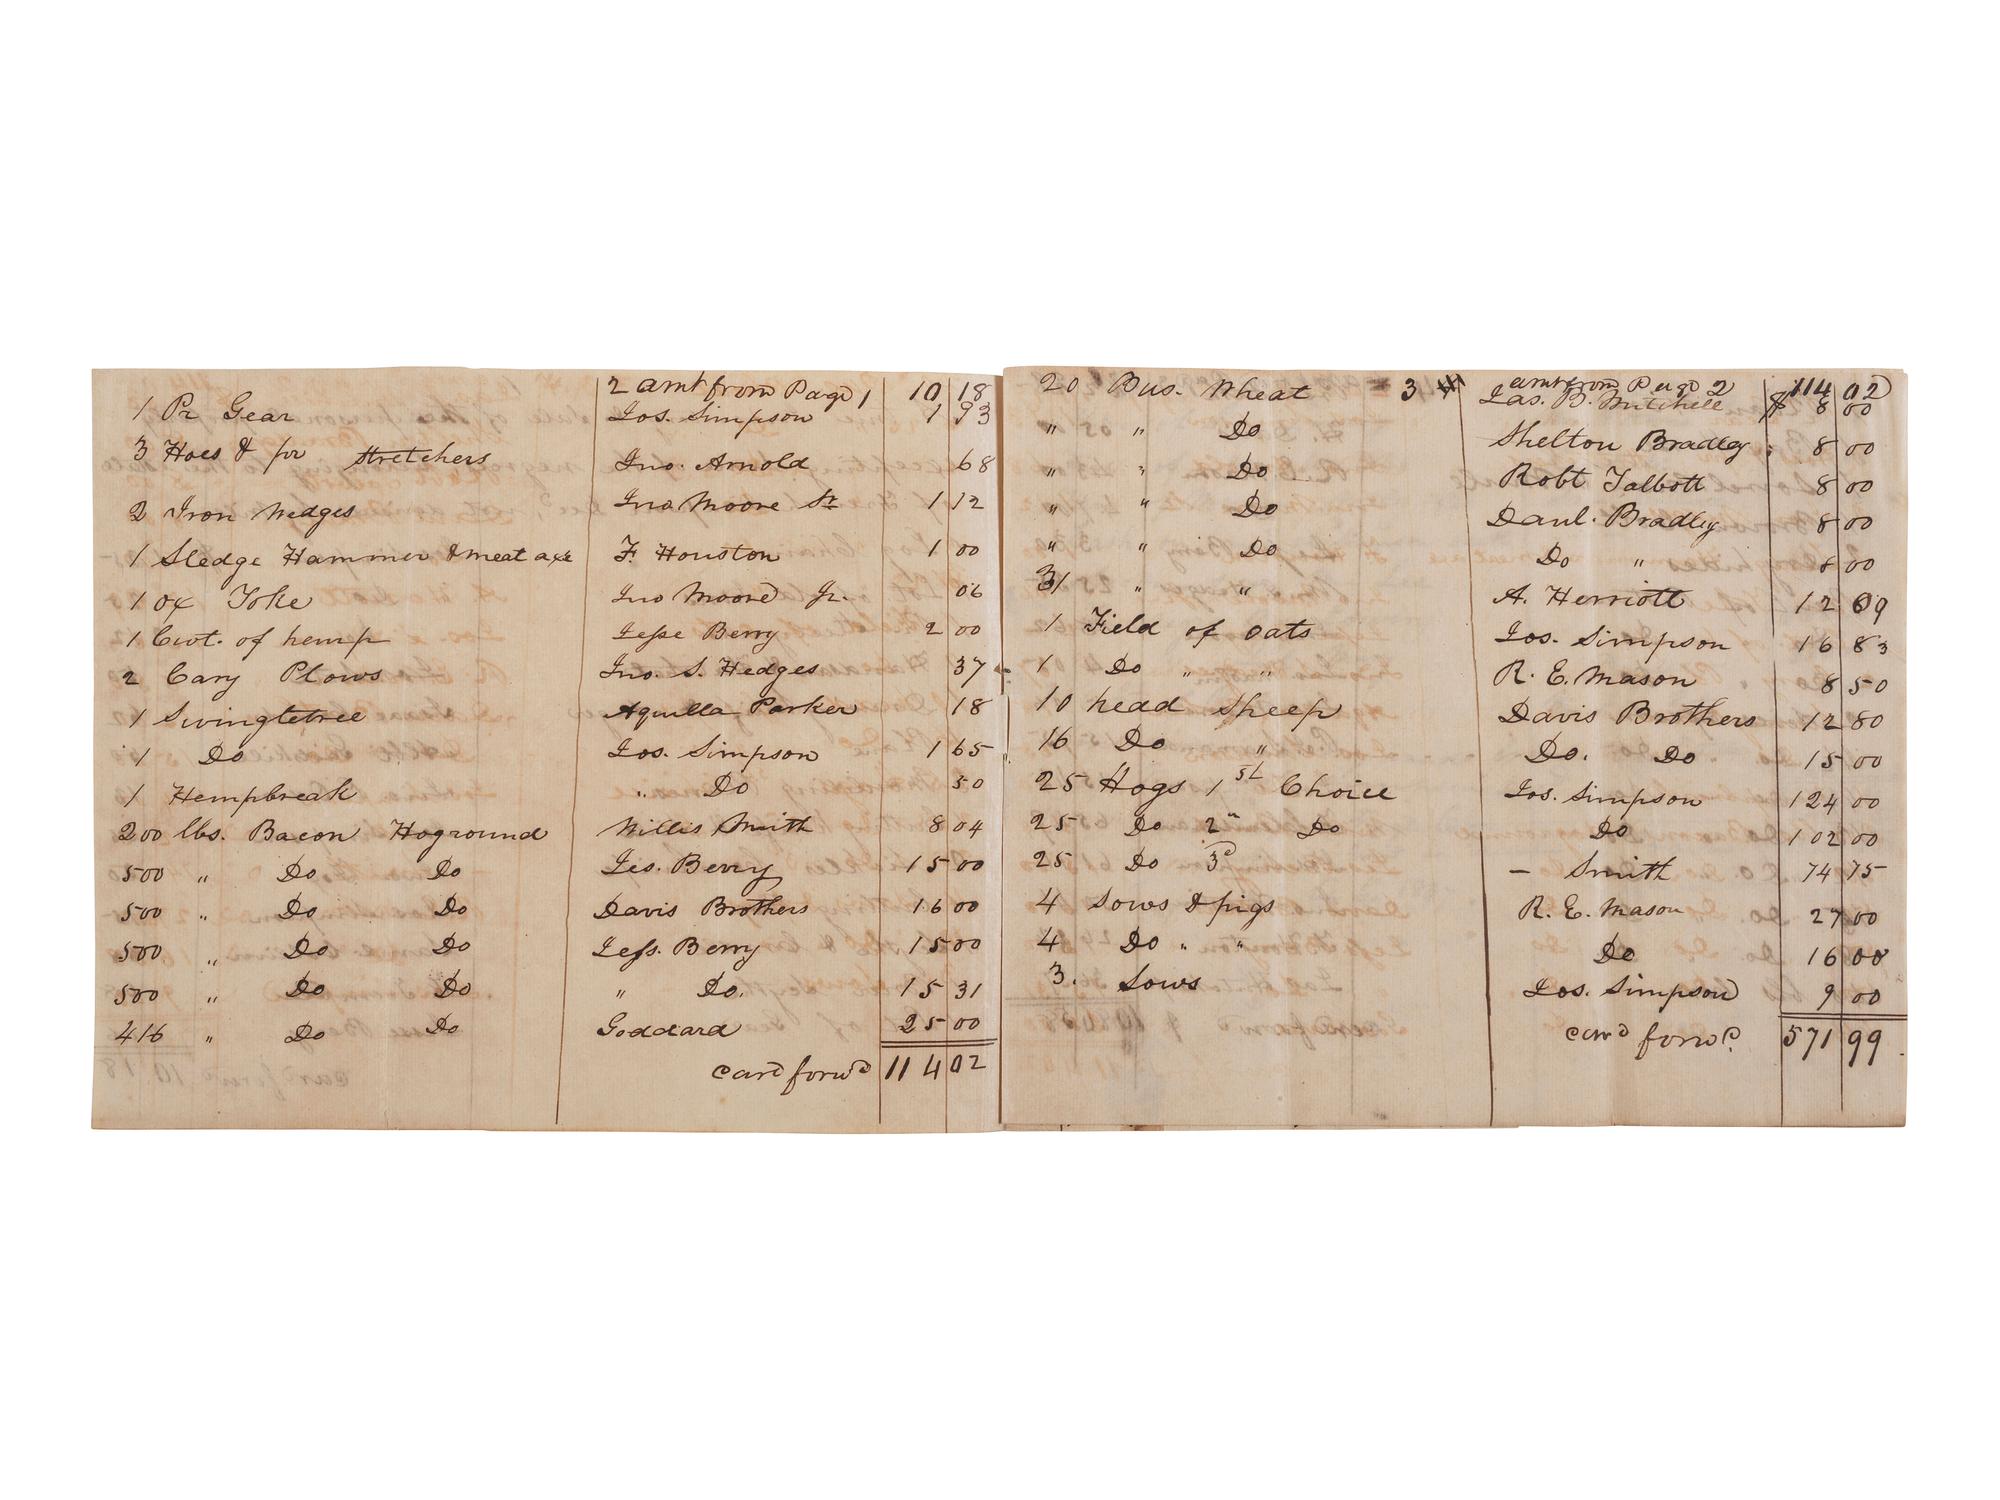 2 amt from Page 1 10 18
1 Pr Gear Jos. Simpson 1 93
3 Hoes & pr stretchers Jno. Arnold 68
2 Iron Wedges Jno Moore Sr 1 12
1 Sledge Hammer & meat axe F. Houston 1 00
1 ox Yoke Jno Moore Jr. 06
1 Cwt. of hemp Jesse Berry 2 00
2 Cary Plows Jno. S. Hedges 37
1 Swingletree Aquilla Parker 18
1 Do Jos. Simpson 1 65
1 Hempbreak " Do 50
200 lbs. Bacon Hoground Willis Smith 8 04
500 " Do Do Jes. Berry 15 00
500 " Do Do Davis Brothers 16 00
500 " Do Do Jess. Berry 15 00
500 " Do Do " Do. 15 31
416 " Do Do Goddard 25 00
card forwd 114 02
3 amt from Page 2 114 02
20 Bus. Wheat Jas. B. Mitchell $ 8 00
" " Do Shelton Bradley 8 00
" " Do Robt Talbott 8 00
" " Do Danl. Bradley 8 00
" " Do Do " 8 00
31 " " A. Herriott 12 09
1 Field of oats Jos. Simpson 16 83
1 Do " " R. E. Mason 8 50
10 head Sheep Davis Brothers 12 80
16 Do " Do. Do 15 00
25 Hogs 1st Choice Jos. Simpson 124 00
25 Do 2" Do Do 102 00
25 Do 3d – Smith 74 75
4 Sows & pigs R. E. Mason 27 00
4 Do " " Do 16 00
3. Sows Jos. Simpson 9 00
card forwd. 571 99